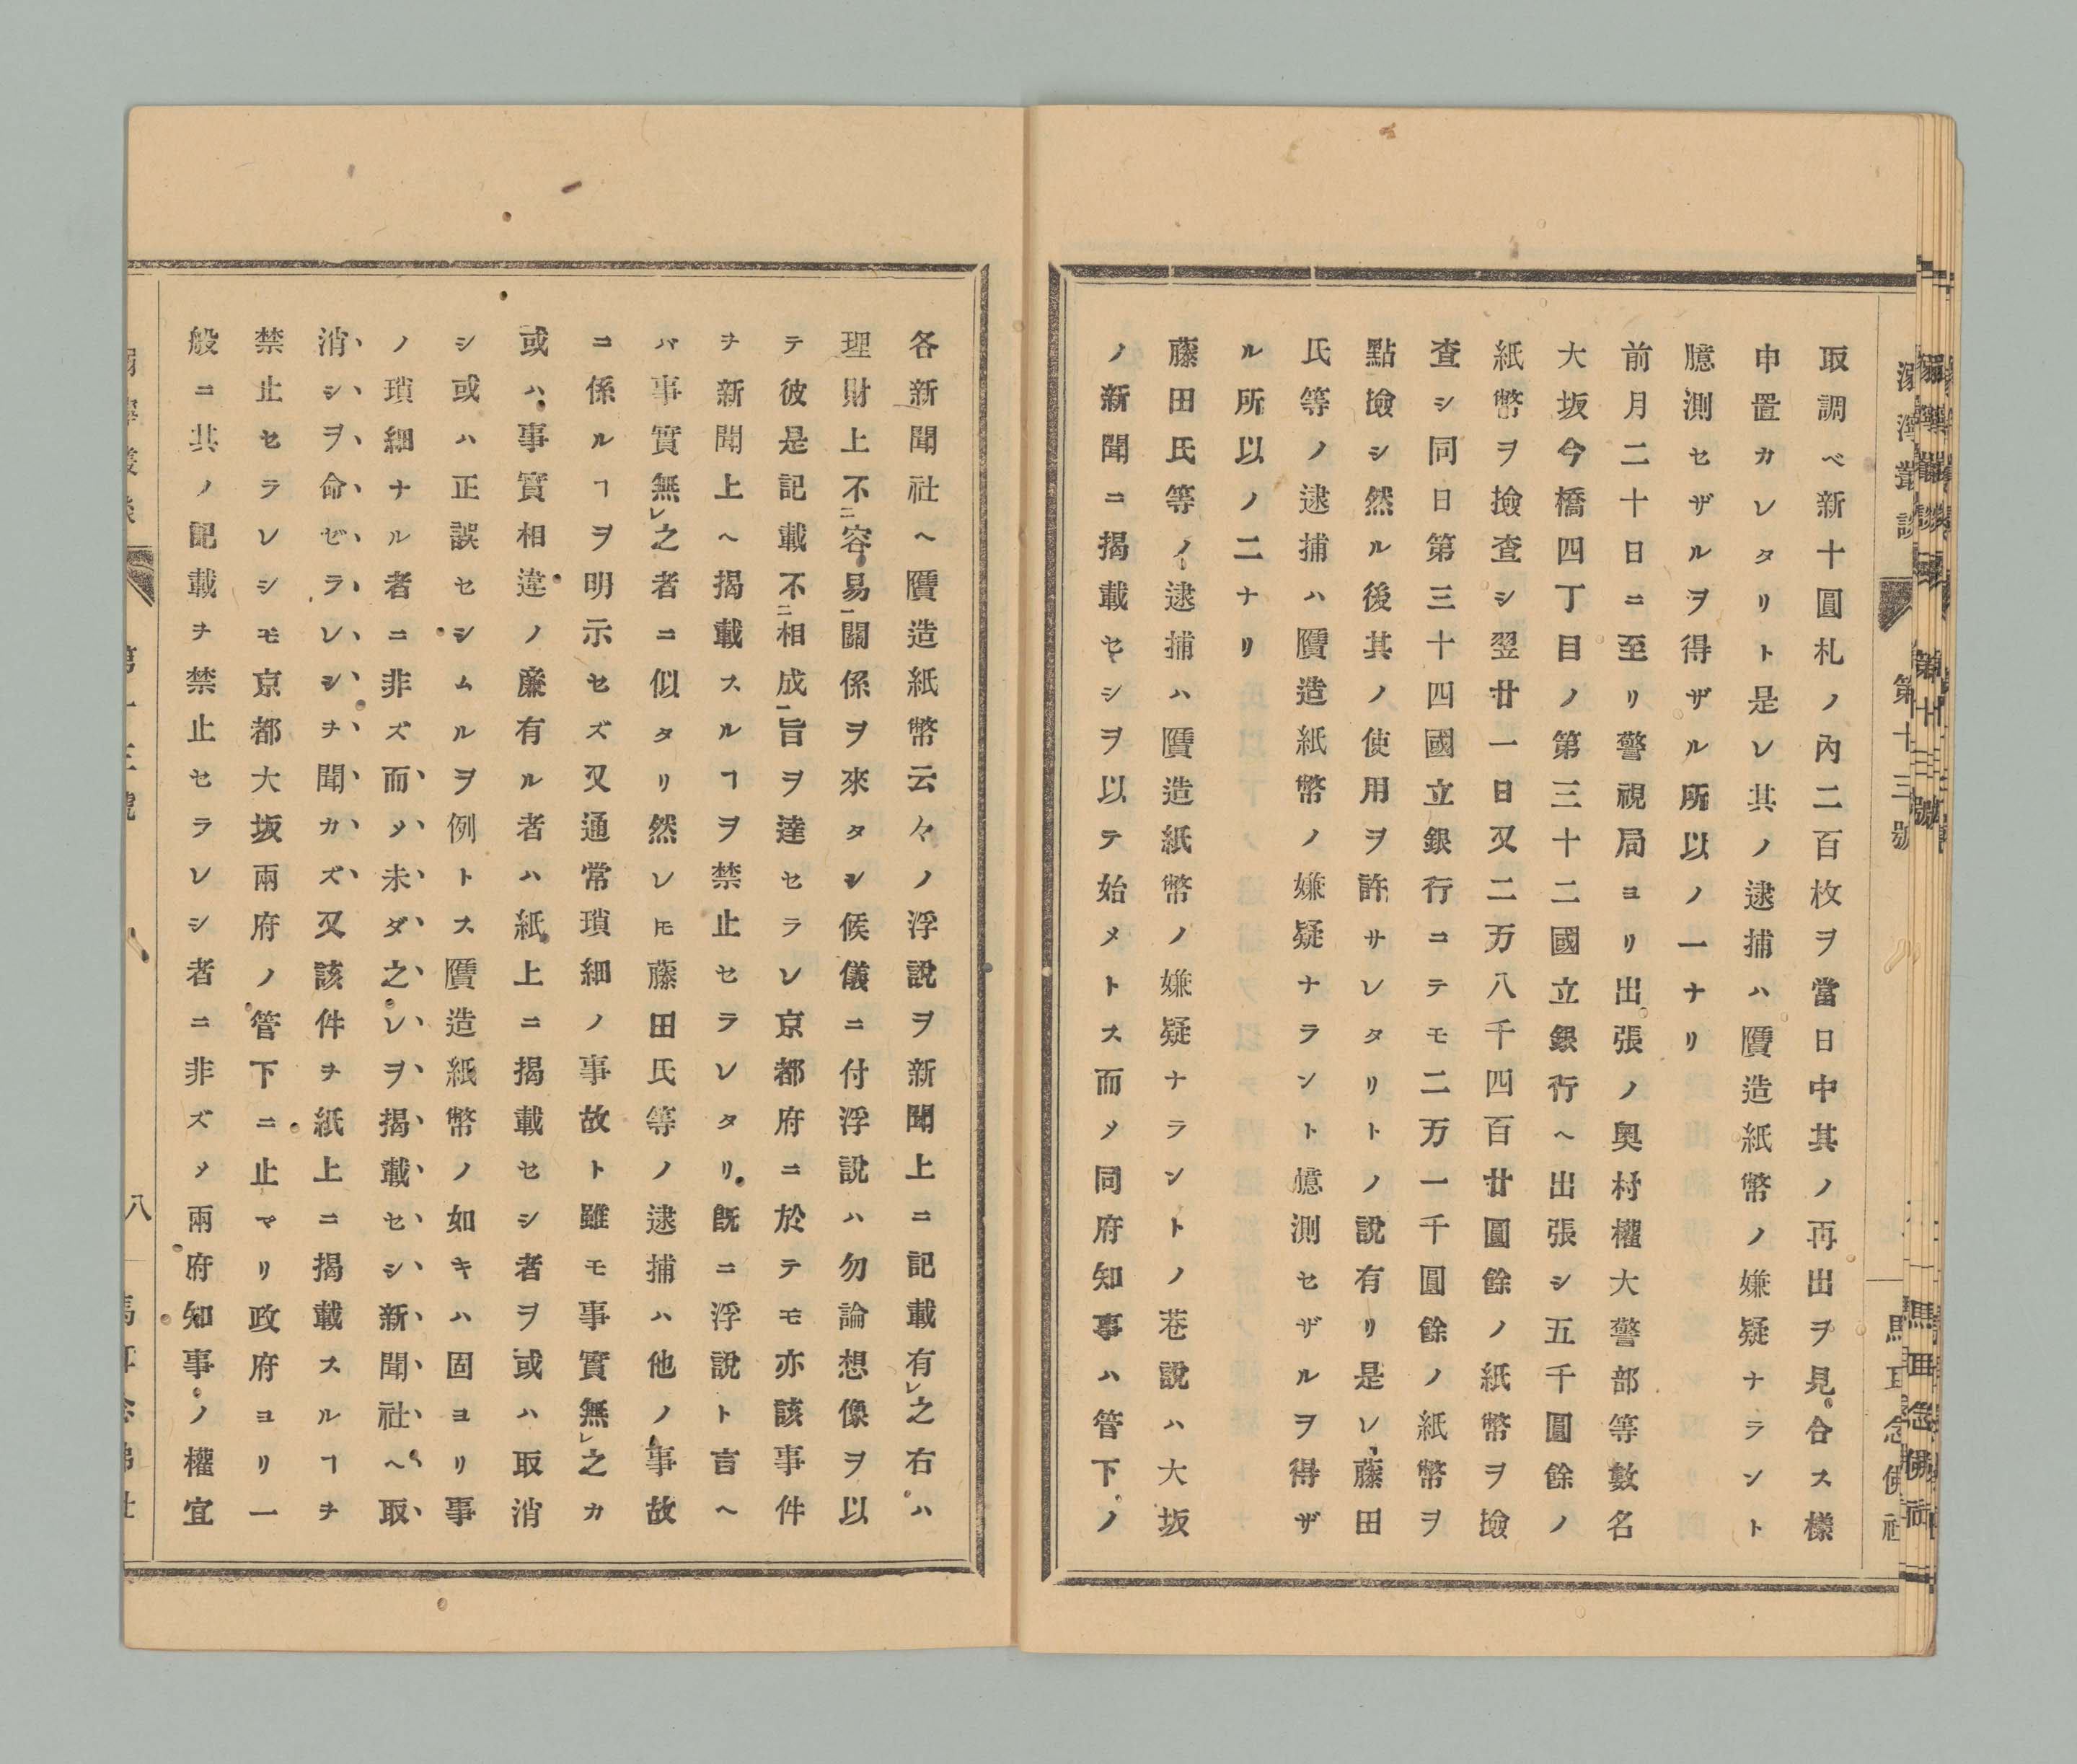 取調ベ新十圓札ノ內二百枚ヲ當日中其ノ再出ヲ見合ス樣
申置カレタリト是レ其ノ逮捕ハ贋造紙幣ノ嫌疑ナラント
臆測セザルヲ得ザル所以ノ一ナリ
前月二十日ニ至リ警視局ヨリ出張ノ奥村權大警部等數名
大坂今橋四丁目ノ第三十二國立銀行ヘ出張シ五千圓餘ノ
紙幣ヲ撿查シ翌廿一日又二万八千四百廿圓餘ノ紙幣ヲ撿
查シ同日第三十四國立銀行ニテモ二万一千圓餘ノ紙幣ヲ
點撿シ然ル後其ノ使用ヲ許サレタリトノ說有リ是レ藤田
氏等ノ逮捕ハ贋造紙幣ノ嫌疑ナラント臆測セザルヲ得ザ
ル所以ノ二ナリ
藤田氏等ノ逮捕ハ贋造紙幣ノ嫌疑ナラントノ巷說ハ大坂
ノ新聞ニ揭載セシヲ以テ始メトス而メ同府知事ハ管下ノ
各新聞社ヘ贋造紙幣云々ノ浮說ヲ新聞上ニ記載有レ之右ハ
理財上不ニ容易一關係ヲ來タシ候儀ニ付浮說ハ勿論想像ヲ以
テ彼是記載不ニ相成一旨ヲ達セラレ京都府ニ於テモ亦該事件
ヲ新聞上ヘ揭載スルヿヲ禁止セラレタリ既ニ浮說ト言ヘ
バ事實無レ之者ニ似タリ然レ𪜈藤田氏等ノ逮捕ハ他ノ事故
ニ係ルヿヲ明示セズ又通常瑣細ノ事故ト雖モ事實無レ之カ
或ハ事實相違ノ廉有ル者ハ紙上ニ揭載セシ者ヲ或ハ取消
シ或ハ正誤セシムルヲ例トス贋造紙幣ノ如キハ固ヨリ事
ノ瑣細ナル者ニ非ズ而メ未ダ之レヲ揭載セシ新聞社ヘ取
消シヲ命ゼラレシヲ聞カズ又該件ヲ紙上ニ揭載スルヿヲ
禁止セラレシモ京都大坂兩府ノ管下ニ止マリ政府ヨリ一
般ニ其ノ記載ヲ禁止セラレシ者ニ非ズメ兩府知事ノ權宜
第十三號
八